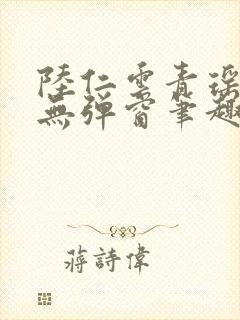 陸仁雲青瑤
無彈窗筆趣
蔣詩偉